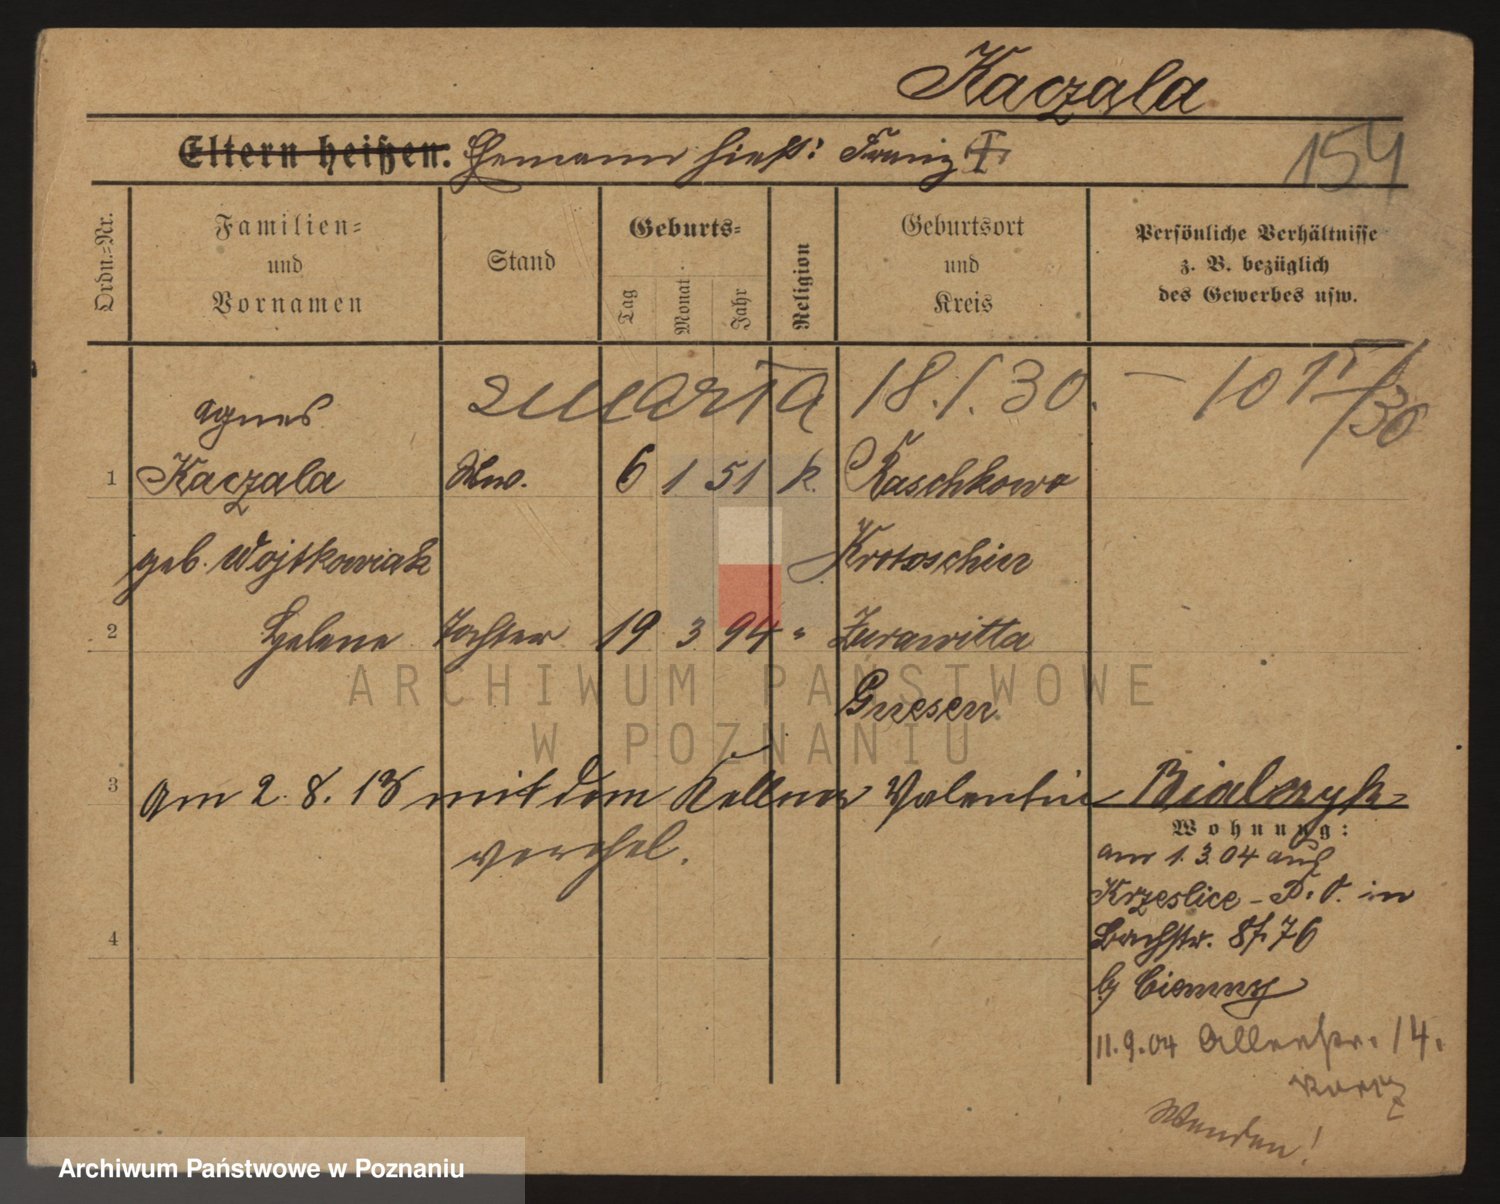 Kaczala
Eltern heißen: Ehemann hieß: Franz †
154
Ordn.-Nr.
Familien-
und
Vornamen
Stand
Geburts-
Tag
Monat
Jahr
Religion
Geburtsort
und
Kreis
Persönliche Verhältnisse
z. B. bezüglich
des Gewerbes usw.
zmarła 18.1.30. –
Agnes
1 Kaczala Ww. 6 1 51 k. Raschkowo
geb. Wojtkowiak Krotoschin
2 Helene Tochter 19 3 94 " Zurawitta
Gnesen
3 am 2.8.13 mit dem Kellner Valentin Bialczyk
verehel.
Wohnung:
am 1.3.04 aus
Krzeslice - P. O. in
Bachstr.
4
b/
11.9.04 14.
Wenden!
ARCHIWUM PAŃSTWOWE
W POZNANIU
Archiwum Państwowe w Poznaniu